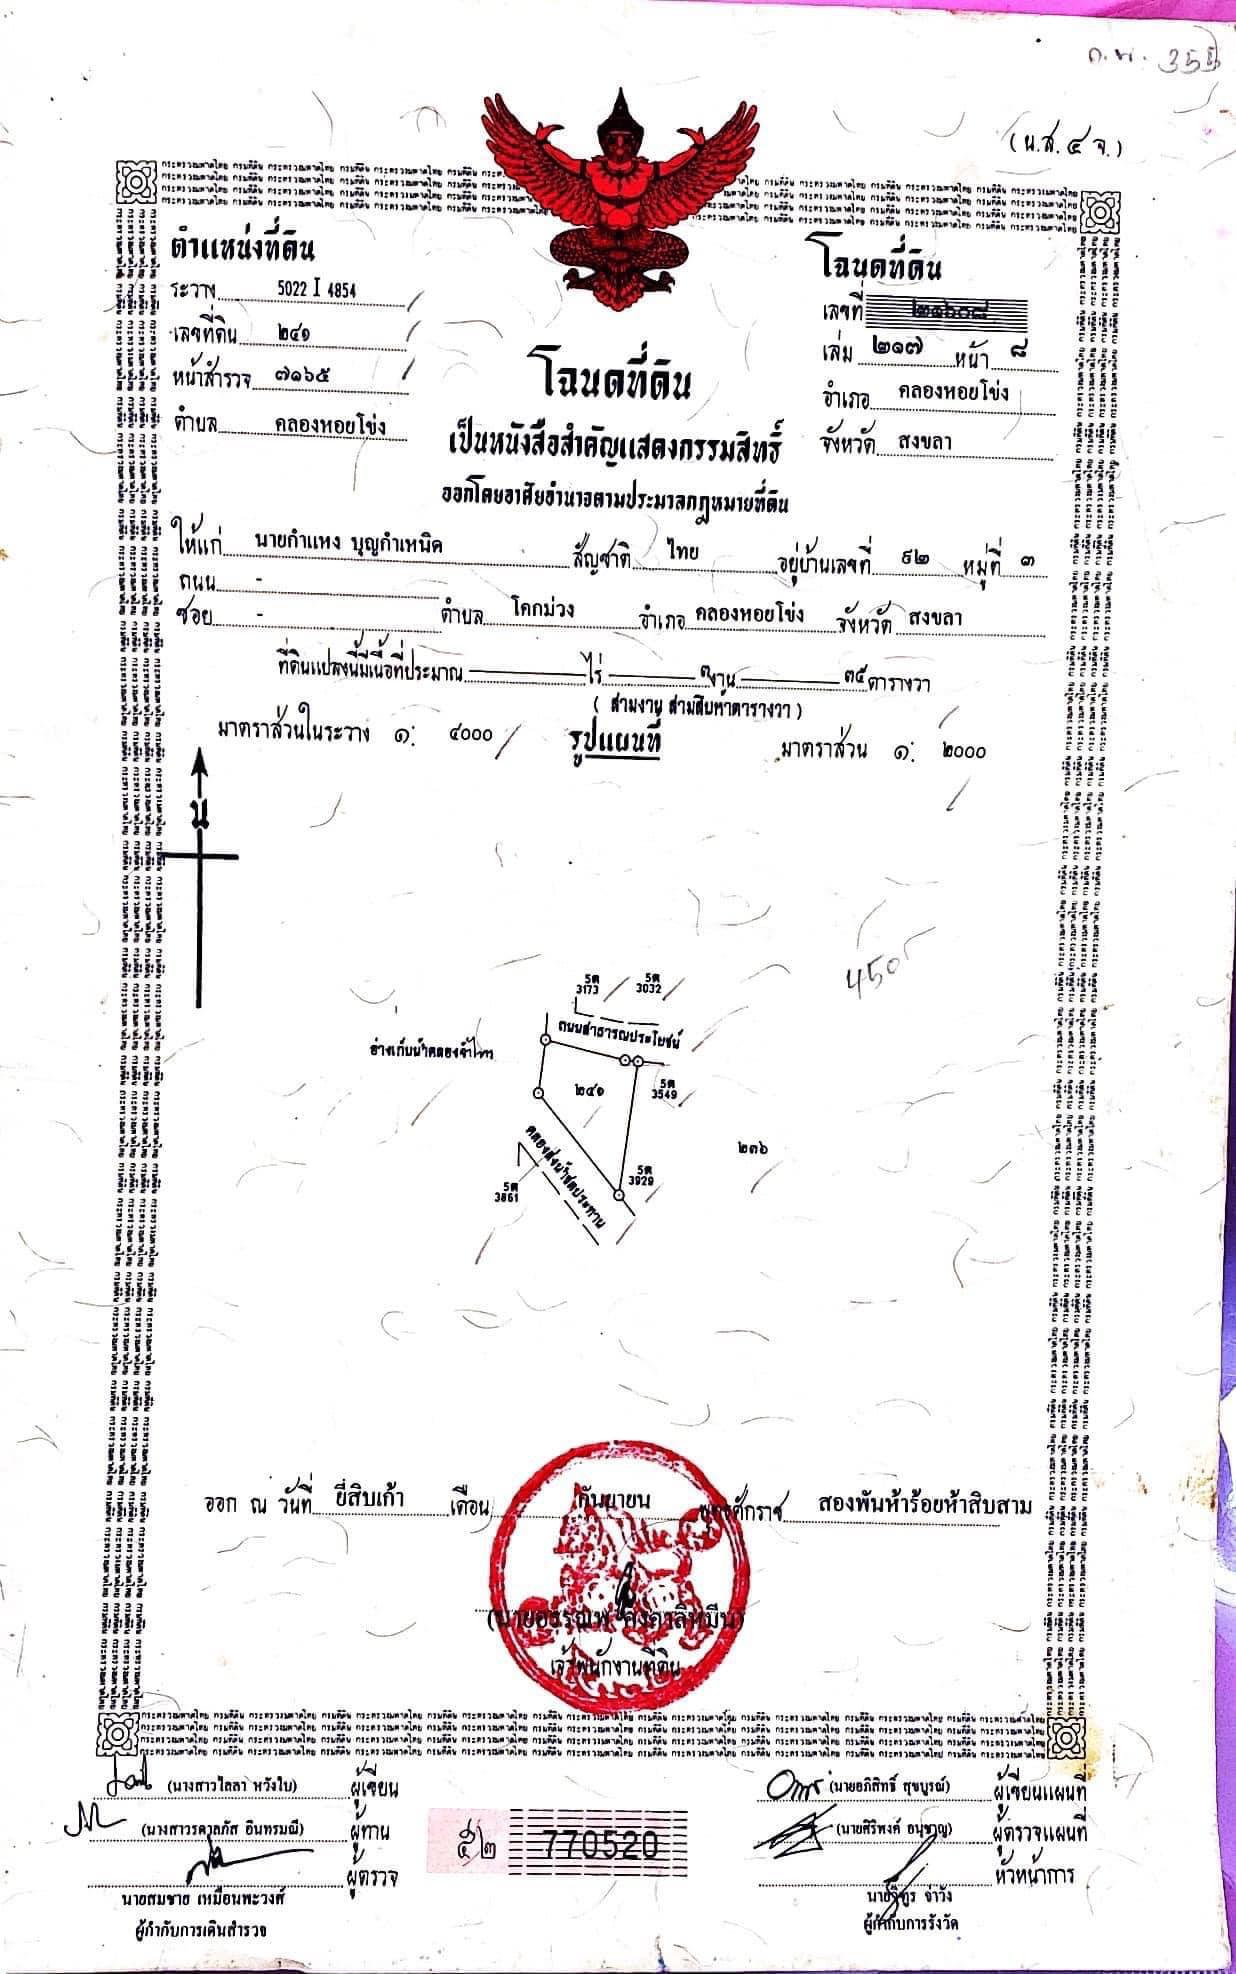 (น.ส. ๔ จ.)
ตำแหน่งที่ดิน
ระวาง 5022 I 4854
เลขที่ดิน ๒๔๑
หน้าสำรวจ ๗๑๖๕
ตำบล คลองหอยโข่ง
โฉนดที่ดิน
เลขที่ ๒๑๖๐๘
เล่ม ๒๑๗ หน้า ๘
อำเภอ คลองหอยโข่ง
จังหวัด สงขลา
โฉนดที่ดิน
เป็นหนังสือสำคัญแสดงกรรมสิทธิ์
ออกโดยอาศัยอำนาจตามประมวลกฎหมายที่ดิน
ให้แก่ นายกำแหง บุญกำเหนิด สัญชาติ ไทย อยู่บ้านเลขที่ ๙๒ หมู่ที่ ๓
ถนน -
ซอย - ตำบล โคกม่วง อำเภอ คลองหอยโข่ง จังหวัด สงขลา
ที่ดินแปลงนี้มีเนื้อที่ประมาณ ไร่ ๓ งาน ๓๕ ตารางวา
( สามงาน สามสิบห้าตารางวา )
มาตราส่วนในระวาง ๑: ๔๐๐๐ รูปแผนที่ มาตราส่วน ๑: ๒๐๐๐
น
450
5ต 3173
5ต 3032
ถนนสาธารณประโยชน์
๒๔๑
5ต 3549
๒๓๖
5ต 3929
คลองส่งน้ำชลประทาน
5ต 3861
ออก ณ วันที่ ยี่สิบเก้า เดือน กันยายน พุทธศักราช สองพันห้าร้อยห้าสิบสาม
เจ้าพนักงานที่ดิน
(นางสาวไลลา หวังใบ) ผู้เขียน
ผู้ทาน
ผู้ตรวจ
นายสมชาย เหมือนพะวงศ์
ผู้กำกับการเดินสำรวจ
๕๒ 770520
(นายอภิสิทธิ์ สุขบูรณ์) ผู้เขียนแผนที่
ผู้ตรวจแผนที่
หัวหน้าการ
ผู้กำกับการรังวัด